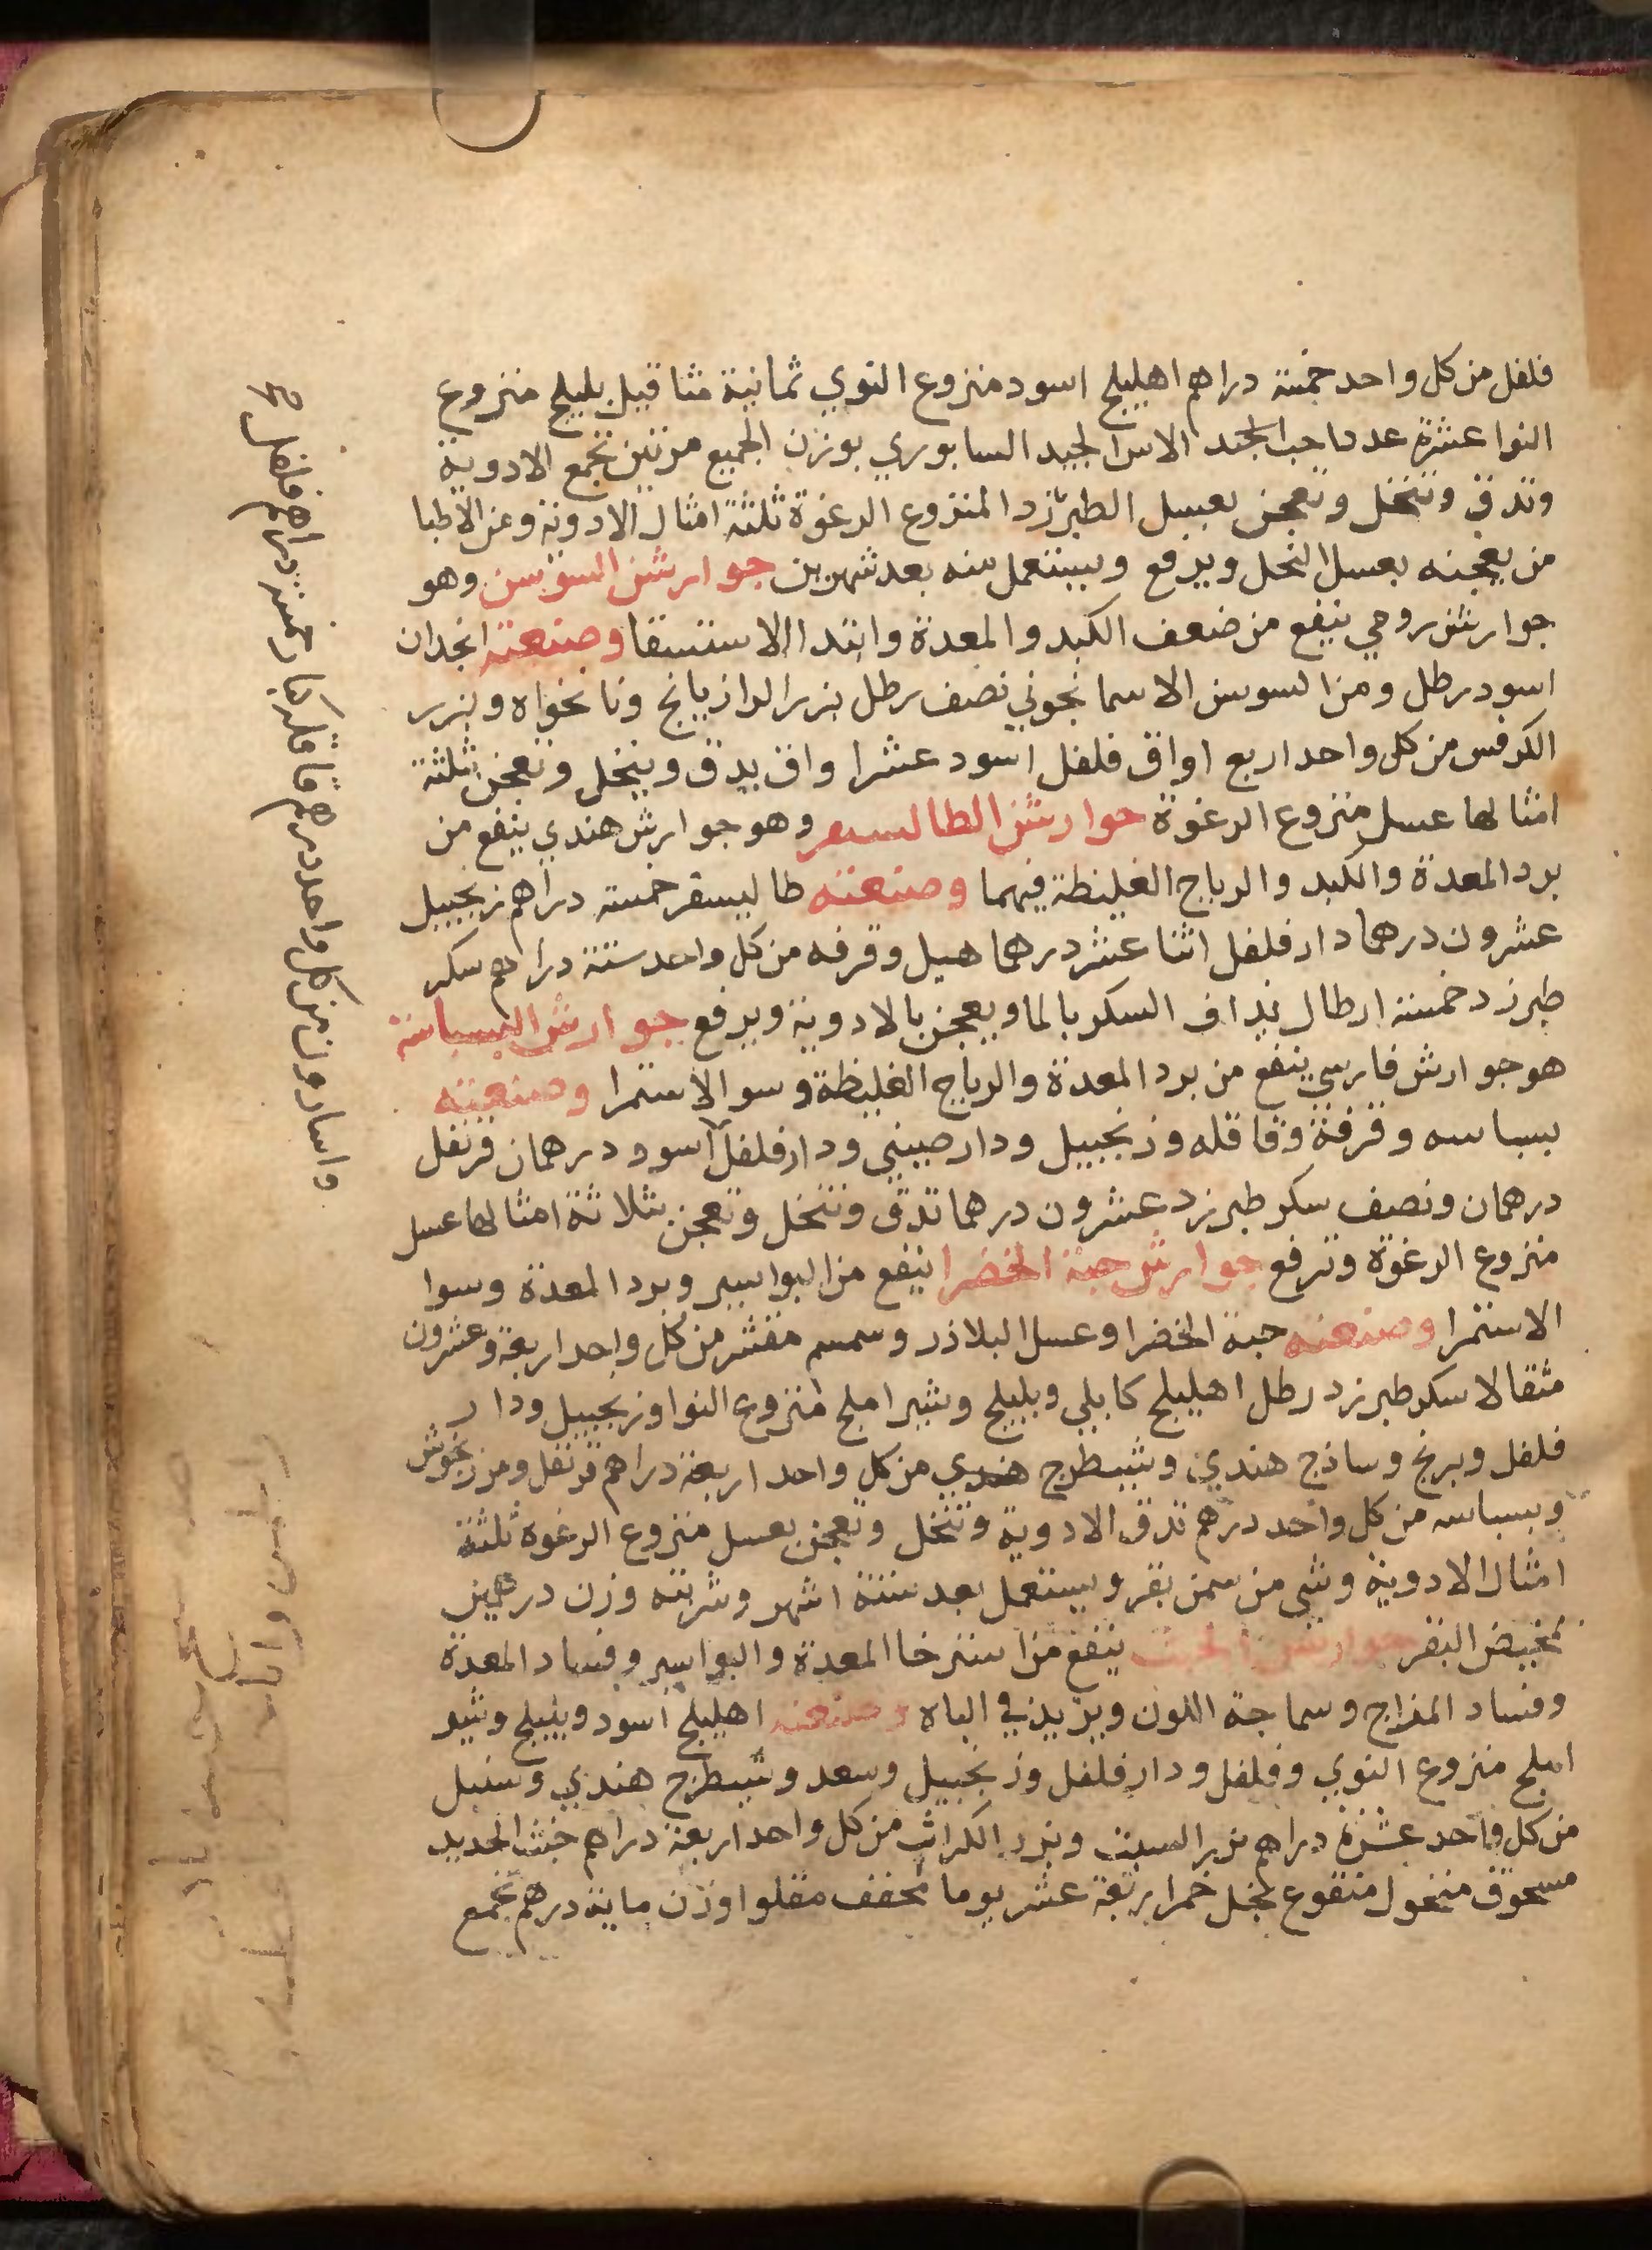 فلفل من كل واحد خمسة دراهم اهليلج اسود منزوع النوي ثمانية مثاقيل بليلج منزوع
النوا عشرة عددا حب الاس الجيد السابوري بوزن الجميع مرتين تجمع الادوية
وتدق وتنخل وتعجن بعسل الطبرزد المنزوع الرغوة ثلثة امثال الادوية وعن الاطبا
من يعجنه بعسل النحل ويرفع ويستعمل منه بعد شهرين جوارشن السوسن وهو
جوارشن رومي ينفع من ضعف الكبد والمعدة وابتدا الاستسقا وصنعته انجدان
اسود رطل ومن السوسن الاسمانجوني نصف رطل بزر الرازيانج ونانخواه وبزر
الكرفس من كل واحد اربع اواق فلفل اسود عشرا واق يدق وينخل وتعجن بثلثة
امثالها عسل منزوع الرغوة جوارشن الطاليسفر وهو جوارش هندي ينفع من
برد المعدة والكبد والرياح الغليظة فيهما وصنعته طاليسفر خمسة دراهم زنجبيل
عشرون درهما دار فلفل اثنا عشر درهما هيل وقرفه من كل واحد ستة دراهم سكر
طبرزد خمسة ارطال يداف السكر بالما ويعجن بالادوية ويرفع جوارش البسباسة
هو جوارش فارسي ينفع من برد المعدة والرياح الغليظة وسو الاستمرا وصنعته
بسباسه وقرفة وقاقله وزنجبيل ودار صيني ودار فلفل اسود درهمان قرنفل
درهمان ونصف سكر طبرزد عشرون درهما تدق وتنخل وتعجن بثلاثة امثالها عسل
منزوع الرغوة وترفع جوارش حبة الخضرا ينفع من البواسير وبرد المعدة وسوا
الاستمرا وصنعته حبة الخضرا وعسل البلاذر وسمسم مقشر من كل واحد اربعة وعشرون
مثقالا سكر طبرزد رطل اهليلج كابلي وبليلج وشير املج منزوع النوا وزنجبيل ودار
فلفل وبرنج وساذج هندي وشيطرج هندي من كل واحد اربعة دراهم قرنفل ومرزنجوش
وبسباسه من كل واحد درهم تدق الادوية وتنخل وتعجن بعسل منزوع الرغوه ثلثة
امثال الادوية وشي من سمن بقر ويستعمل بعد ستة اشهر وشربته وزن درهمين
بمخيض البقر جوارش الخبث ينفع من استرخا المعدة والبواسير وفساد المعدة
وفساد المزاج وسماجة اللون ويزيد في الباه وصنعته اهليلج اسود وبليلج وشير
املج منزوع النوي وفلفل ودار فلفل وزنجبيل وسعد وشيطرج هندي وسنبل
من كل واحد عشرة دراهم بزر السبت وبزر الكراث من كل واحد اربعة دراهم خبث الحديد
مسحوق منخول منقوع بخل خمر اربعة عشر يوما مجفف مقلوا وزن ماية درهم تجمع
واسارون من كل واحد درهم قاقله كبار خمسة دراهم فلفل